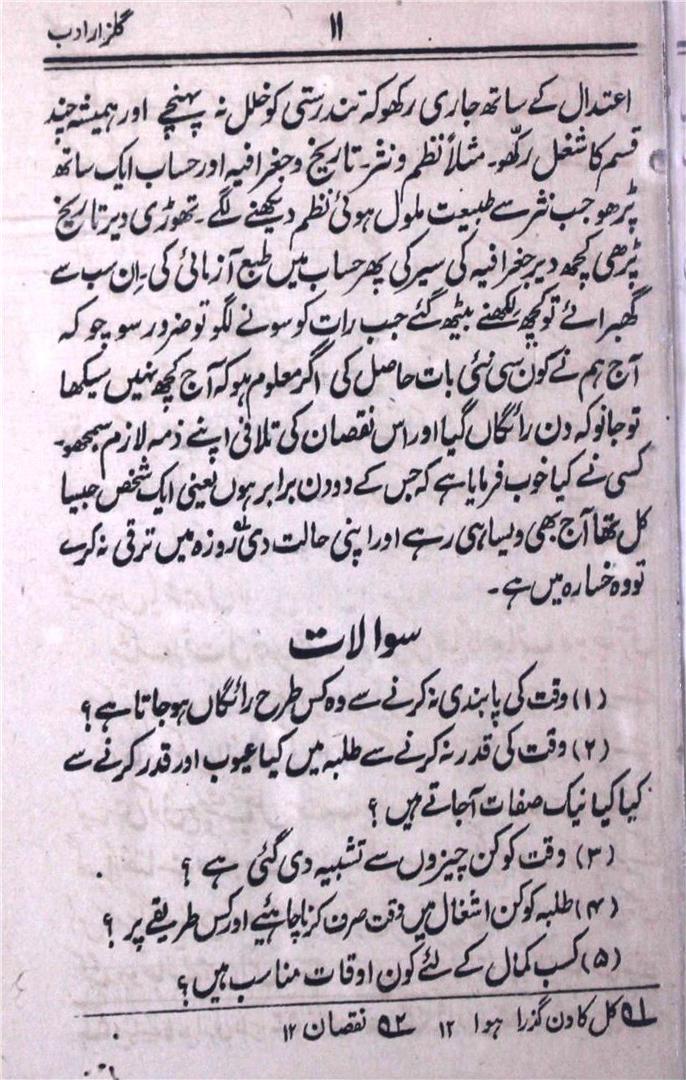 گلزار ادب
۱۱
اعتدال کے ساتھ جاری رکھو کہ تندرستی کو خلل نہ پہنچے اور ہمیشہ چند
قسم کا شغل رکھو۔ مثلاً نظم و نثر۔ تاریخ و جغرافیہ اور حساب ایک ساتھ
پڑھو جب نثر سے طبیعت ملول ہوئی نظم دیکھنے لگے۔ تھوڑی دیر تاریخ
پڑھی کچھ دیر جغرافیہ کی سیر کی پھر حساب میں طبع آزمائی کی۔ اِن سب سے
گھبرائے تو کچھ لکھنے بیٹھ گئے جب رات کو سونے لگو تو ضرور سوچو کہ
آج ہم نے کون سی نئی بات حاصل کی اگر معلوم ہو کہ آج کچھ نہیں سیکھا
تو جانو کہ دن رائگاں گیا اور اس نقصان کی تلافی اپنے ذمہ لازم سمجھو۔
کسی نے کیا خوب فرمایا ہے کہ جس کے دو دن برابر ہوں یعنی ایک شخص جیسا
کل تھا آج بھی ویسا ہی رہے اور اپنی حالت دی روزہ میں ترقی نہ کرے
تو وہ خسارہ میں ہے۔
سوالات
(۱) وقت کی پابندی نہ کرنے سے وہ کس طرح رائگاں ہو جاتا ہے؟
(۲) وقت کی قدر نہ کرنے سے طلبہ میں کیا عیوب اور قدر کرنے سے
کیا کیا نیک صفات آجاتے ہیں؟
(۳) وقت کو کن چیزوں سے تشبیہ دی گئی ہے؟
(۴) طلبہ کو کن اشغال میں وقت صرف کرنا چاہئیے اور کس طریقے پر؟
(۵) کسب کمال کے لئے کون اوقات مناسب ہیں؟
۵۱ کل کا دن گذرا ہوا ۱۲ ۵۲ نقصان ۱۲